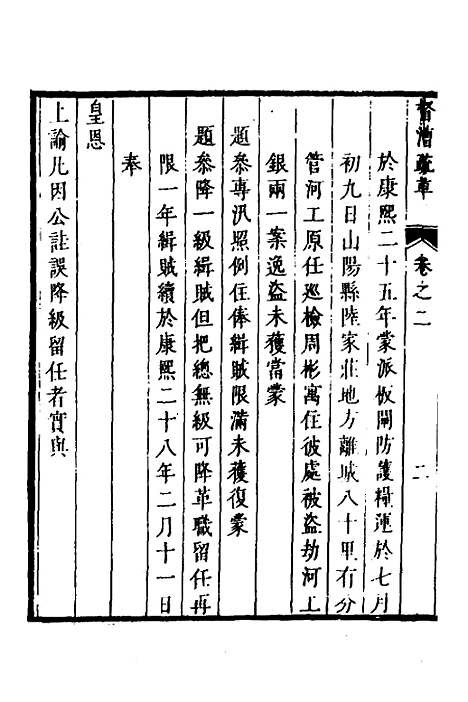 督漕疏草
卷之二
二
於康熙二十五年蒙派板閘防護糧運於七月
初九日山陽縣陸家莊地方離城八十里有分
管河工原任巡檢周彬寓住彼處被盜劫河工
銀兩一案逸盜未獲當蒙
題參專汛照例住俸緝賊限滿未獲復蒙
題參降一級緝賊但把總無級可降革職留任再
限一年緝賊續於康熙二十八年二月十一日
奉
皇恩
上諭凡因公詿誤降級留任者實與